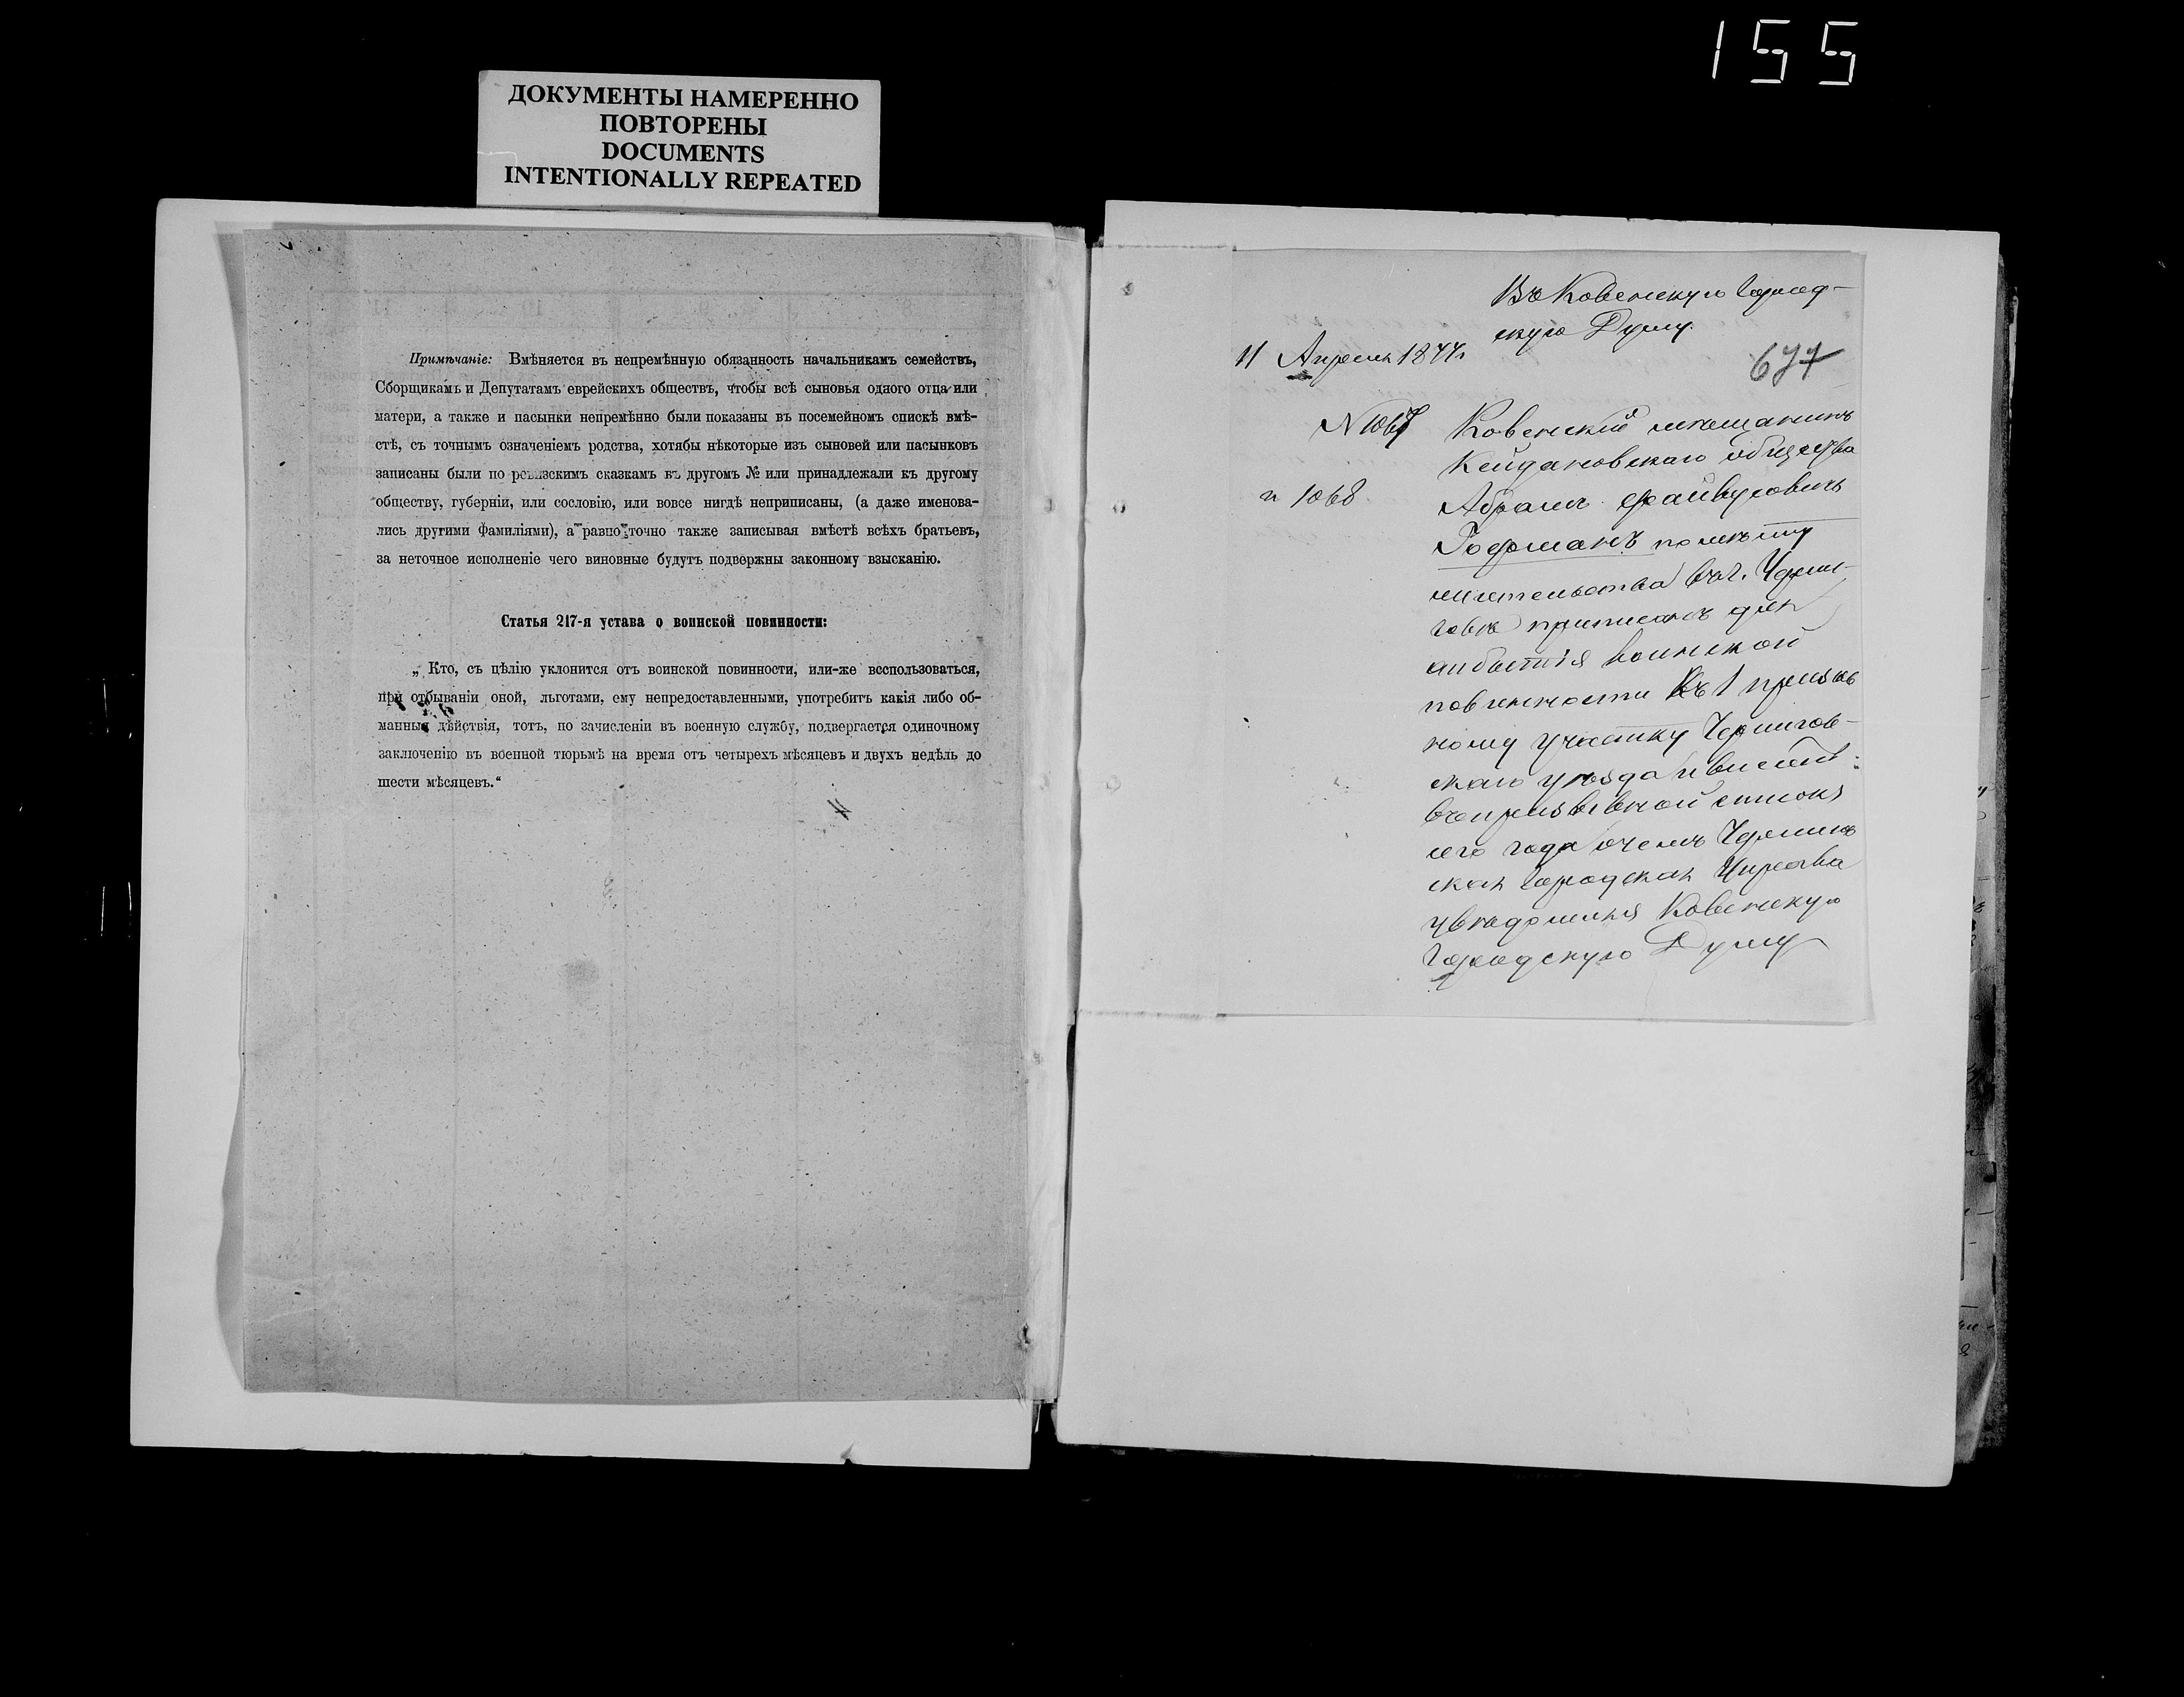 155
ДОКУМЕНТЫ НАМЕРЕННО
ПОВТОРЕНЫ
DOCUMENTS
INTENTIONALLY REPEATED
Примѣчаніе: Вмѣняется въ непремѣнную обязанность начальникамъ семействъ,
Сборщикамъ и Депутатамъ еврейскихъ обществъ, чтобы всѣ сыновья одного отца или
матери, а также и пасынки непремѣнно были показаны въ посемейномъ спискѣ вмѣ-
стѣ, съ точнымъ означеніемъ родства, хотябы нѣкоторые изъ сыновей или пасынковъ
записаны были по ревизскимъ сказкамъ въ другомъ № или принадлежали къ другому
обществу, губерніи, или сословію, или вовсе нигдѣ неприписаны, (а даже именова-
лись другими фамиліями), а равно точно также записывая вмѣстѣ всѣхъ братьевъ,
за неточное исполненіе чего виновные будутъ подвержны законному взысканію.
Статья 217-я устава о воинской повинности:
„ Кто, съ цѣлію уклонится отъ воинской повинности, или-же воспользоваться,
при отбываніи оной, льготами, ему непредоставленными, употребитъ какія либо об-
манныя дѣйствія, тотъ, по зачисленіи въ военную службу, подвергается одиночному
заключенію въ военной тюрьмѣ на время отъ четырехъ мѣсяцевъ и двухъ недѣль до
шести мѣсяцевъ.“
Въ Ковенскую Город-
скую Думу.
11 Апрѣля 1877г
677
N 1067
Ковенскій мѣщанинъ
Кейдановскаго общества
и 1068
Абрамъ Файвусовичъ
Гофманъ по мѣсту
жительства въ г. Черни-
говѣ приписанъ для
отбытія воинской
повинности къ 1 призыв
ному участку Чернигов-
скаго уѣзда и внесенъ
въ призывной списокъ
сего года о чемъ Чернигов
ская Городская Управа
увѣдомляя Ковенскую
Городскую Думу